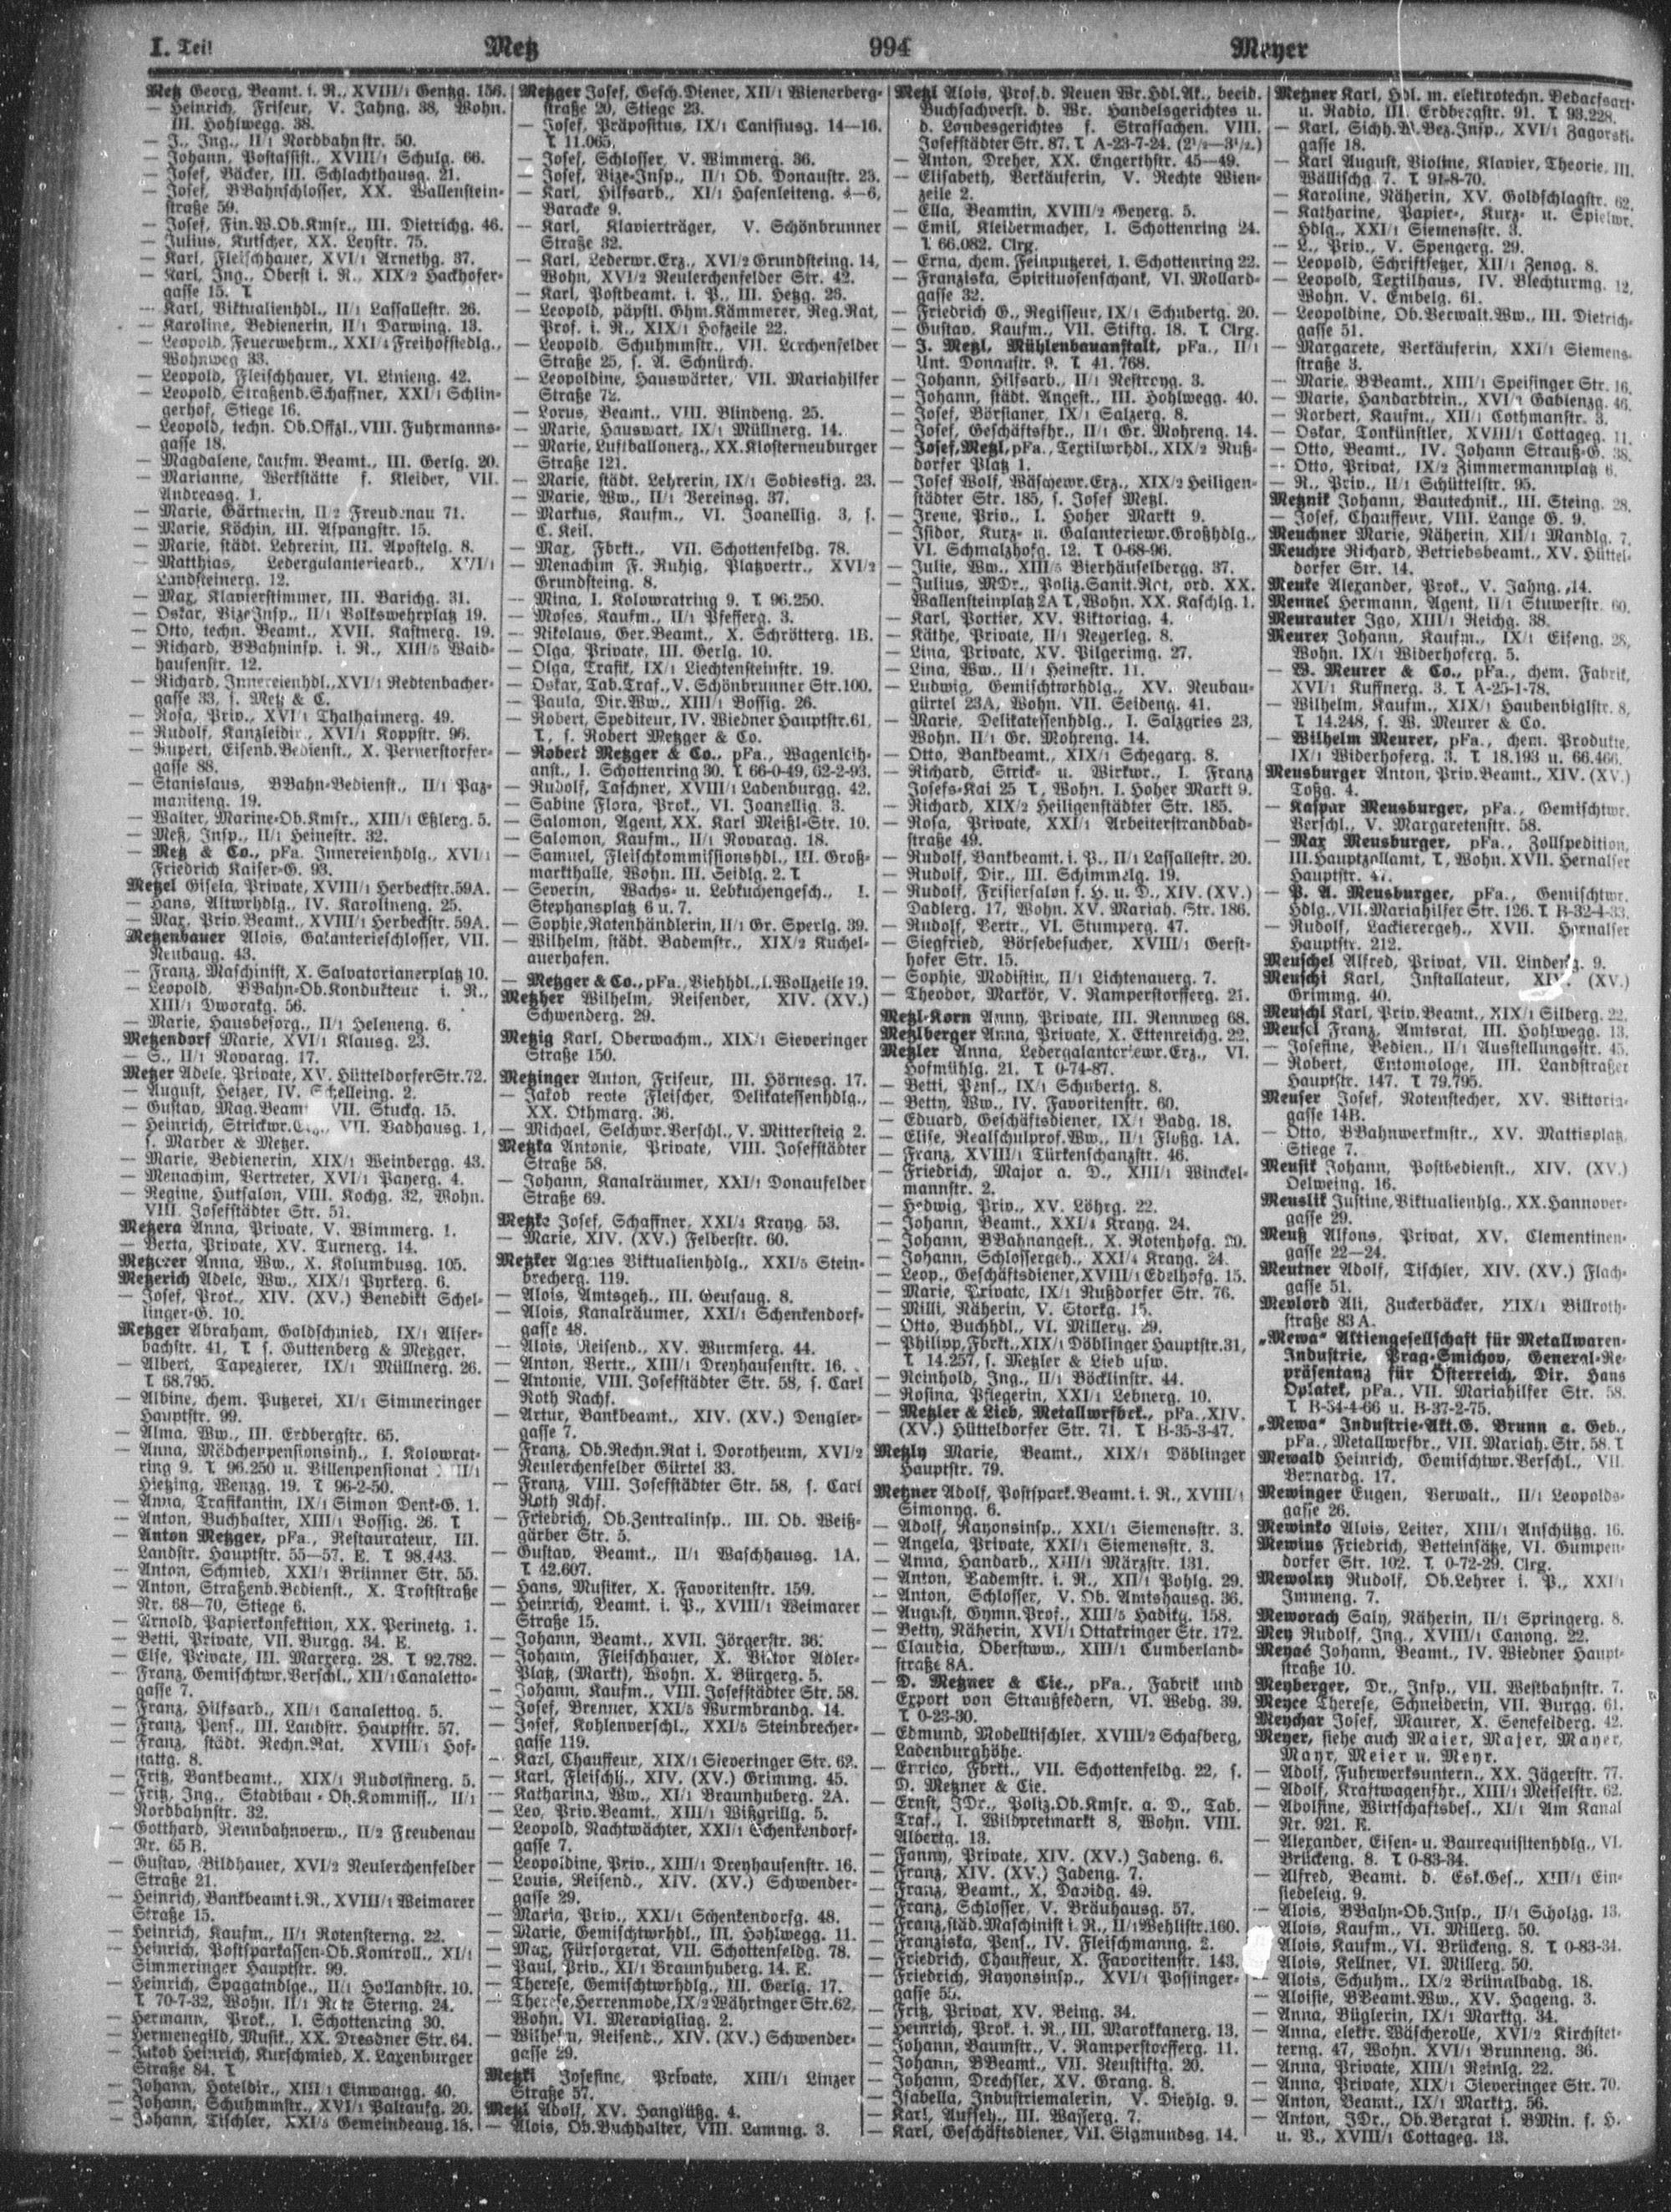 I. Teil Metz 994 Meyer
Metz Georg, Beamt. i. R., XVIII/1 Gentzg. 156.
— Heinrich, Friseur, V. Jahng. 38, Wohn.
III. Hohlwegg. 38.
— J., Ing., II/1 Nordbahnstr. 50.
— Johann, Postassist., XVIII/1 Schulg. 66.
— Josef, Bäcker, III. Schlachthausg. 21.
— Josef, BBahnschlosser, XX. Wallenstein-
straße 59.
— Josef, Fin.W.Ob.Kmsr., III. Dietrichg. 46.
— Julius, Kutscher, XX. Leystr. 75.
— Karl, Fleischhauer, XVI/1 Arnethg. 37.
— Karl, Ing., Oberst i. R., XIX/2 Hackhofer-
gasse 15. T.
— Karl, Viktualienhdl., II/1 Lassallestr. 26.
— Karoline, Bedienerin, II/1 Darwing. 13.
— Leopold, Feuerwehrm., XXI/4 Freihofsiedlg.,
Wohnweg 33.
— Leopold, Fleischhauer, VI. Linieng. 42.
— Leopold, Straßenb.Schaffner, XXI/1 Schlin-
gerhof, Stiege 16.
— Leopold, techn. Ob.Offzl., VIII. Fuhrmanns-
gasse 18.
— Magdalene, kaufm. Beamt., III. Gerlg. 20.
— Marianne, Werkstätte f. Kleider, VII.
Andreasg. 1.
— Marie, Gärtnerin, II/2 Freudenau 71.
— Marie, Köchin, III. Aspangstr. 15.
— Marie, städt. Lehrerin, III. Apostelg. 8.
— Matthias, Ledergalanteriearb., XVI/1
Landsteinerg. 12.
— Max, Klavierstimmer, III. Barichg. 31.
— Oskar, VizeInsp., II/1 Volkswehrplatz 19.
— Otto, techn. Beamt., XVII. Kastnerg. 19.
— Richard, BBahninsp. i. R., XIII/5 Waid-
hausenstr. 12.
— Richard, Innereienhdl., XVI/1 Redtenbacher-
gasse 33, s. Metz & C.
— Rosa, Priv., XVI/1 Thalhaimerg. 49.
— Rudolf, Kanzleidir., XVI/1 Koppstr. 96.
— Rupert, Eisenb.Bedienst., X. Pernerstorfer-
gasse 88.
— Stanislaus, BBahn-Bedienst., II/1 Paz-
maniteng. 19.
— Walter, Marine-Ob.Kmsr., XIII/1 Eßlerg. 5.
— Meß, Insp., II/1 Heinestr. 32.
— Metz & Co., pFa. Innereienhdlg., XVI/1
Friedrich Kaiser-G. 93.
Metzel Gisela, Private, XVIII/1 Herbeckstr. 59A.
— Hans, Altwrhdlg., IV. Karolineng. 25.
— Max, Priv.Beamt., XVIII/1 Herbeckstr. 59A.
Metzenbauer Alois, Galanterieschlosser, VII.
Neubaug. 43.
— Franz, Maschinist, X. Salvatorianerplatz 10.
— Leopold, BBahn-Ob.Kondukteur i. R.,
XIII/1 Dworakg. 56.
— Marie, Hausbesorg., II/1 Heleneng. 6.
Metzendorf Marie, XVI/1 Klausg. 23.
— S., II/1 Novarag. 17.
Metzer Adele, Private, XV. Hütteldorfer Str. 72.
— August, Heizer, IV. Schelleing. 2.
— Gustav, Mag.Beamt. VII. Stuckg. 15.
— Heinrich, Strickwr. VII. Badhausg. 1,
s. Marder & Metzer.
— Marie, Bedienerin, XIX/1 Weinbergg. 43.
— Menachim, Vertreter, XVI/1 Payerg. 4.
— Regine, Hutsalon, VIII. Kochg. 32, Wohn.
VIII. Josefstädter Str. 51.
Metzera Anna, Private, V. Wimmerg. 1.
— Berta, Private, XV. Turnerg. 14.
Metzerer Anna, Ww., X. Kolumbusg. 105.
Metzerich Adele, Ww., XIX/1 Pyrkerg. 6.
— Josef, Prok., XIV. (XV.) Benedikt Schel-
linger-G. 10.
Metzger Abraham, Goldschmied, IX/1 Alser-
bachstr. 41, T. s. Guttenberg & Metzger.
— Albert, Tapezierer, IX/1 Müllnerg. 26.
T. 68.795.
— Albine, chem. Putzerei, XI/1 Simmeringer
Hauptstr. 99.
— Alma, Ww., III. Erdbergstr. 65.
— Anna, Mädchenpensionsinh., I. Kolowrat-
ring 9. T. 96.250 u. Villenpensionat XIII/1
Hietzing, Wenzg. 19. T. 96-2-50.
— Anna, Trafikantin, IX/1 Simon Denk-G. 1.
— Anton, Buchhalter, XIII/1 Bossig. 26. T.
— Anton Metzger, pFa., Restaurateur, III.
Landstr. Hauptstr. 55—57. E. T. 98.443.
— Anton, Schmied, XXI/1 Brünner Str. 55.
— Anton, Straßenb.Bedienst., X. Troststraße
Nr. 68—70, Stiege 6.
— Arnold, Papierkonfektion, XX. Perinetg. 1.
— Betti, Private, VII. Burgg. 34. E.
— Else, Private, III. Marxerg. 28. T. 92.782.
— Franz, Gemischtwr.Verschl., XII/1 Canaletto-
gasse 7.
— Franz, Hilfsarb., XII/1 Canalettog. 5.
— Franz, Pens., III. Landstr. Hauptstr. 57.
— Franz, städt. Rechn.Rat, XVIII/1 Hof-
stattg. 8.
— Fritz, Bankbeamt., XIX/1 Rudolfinerg. 5.
— Fritz, Ing., Stadtbau-Ob.Kommiss., II/1
Nordbahnstr. 32.
— Gotthard, Rennbahnverw., II/2 Freudenau
Nr. 65B.
— Gustav, Bildhauer, XVI/2 Neulerchenfelder
Straße 21.
— Heinrich, Bankbeamt i.R., XVIII/1 Weimarer
Straße 15.
— Heinrich, Kaufm., II/1 Rotensterng. 22.
— Heinrich, Postsparkassen-Ob.Kontroll., XI/1
Simmeringer Hauptstr. 99.
— Heinrich, Spagatndlge., II/1 Hollandstr. 10.
T. 70-7-32, Wohn. II/1 Rote Sterng. 24.
— Hermann, Prok., I. Schottenring 30.
— Hermenegild, Musik., XX. Dresdner Str. 64.
— Jakob Heinrich, Kurschmied, X. Laxenburger
Straße 84. T.
— Johann, Hoteldir., XIII/1 Einwangg. 40.
— Johann, Schuhmmstr., XVI/1 Paltaufg. 20.
— Johann, Tischler, XXI/5 Gemeindeaug. 15.
Metzger Josef, Gesch.Diener, XII/1 Wienerberg-
straße 20, Stiege 23.
— Josef, Präpositus, IX/1 Canisiusg. 14—16.
T. 11.065.
— Josef, Schlosser, V. Wimmerg. 36.
— Josef, Vize-Insp., II/1 Ob. Donaustr. 23.
— Karl, Hilfsarb., XI/1 Hasenleiteng. 4—6,
Baracke 9.
— Karl, Klavierträger, V. Schönbrunner
Straße 32.
— Karl, Lederwr.Erz., XVI/2 Grundsteing. 14,
Wohn. XVI/2 Neulerchenfelder Str. 42.
— Karl, Postbeamt. i. P., III. Hetzg. 25.
— Leopold, päpstl. Ghm.Kämmerer, Reg.Rat,
Prof. i. R., XIX/1 Hofzeile 22.
— Leopold, Schuhmmstr., VII. Lerchenfelder
Straße 25, s. A. Schnürch.
— Leopoldine, Hauswärter, VII. Mariahilfer
Straße 72.
— Lorus, Beamt., VIII. Blindeng. 25.
— Marie, Hauswart, IX/1 Müllnerg. 14.
— Marie, Luftballonerz., XX. Klosterneuburger
Straße 121.
— Marie, städt. Lehrerin, IX/1 Sobieskig. 23.
— Marie, Ww., II/1 Vereinsg. 37.
— Markus, Kaufm., VI. Joanellig. 3, s.
C. Keil.
— Max, Fbrkt., VII. Schottenfeldg. 78.
— Menachim F. Ruhig, Platzvertr., XVI/2
Grundsteing. 8.
— Mina, I. Kolowratring 9. T. 96.250.
— Moses, Kaufm., II/1 Pfefferg. 3.
— Nikolaus, Ger.Beamt., X. Schrötterg. 1B.
— Olga, Private, III. Gerlg. 10.
— Olga, Trafik, IX/1 Liechtensteinstr. 19.
— Oskar, Tab.Traf., V. Schönbrunner Str. 100.
— Paula, Dir.Ww., XIII/1 Bossig. 26.
— Robert, Spediteur, IV. Wiedner Hauptstr. 61.
T., s. Robert Metzger & Co.
— Robert Metzger & Co., pFa., Wagenleih-
anst., I. Schottenring 30. T. 66-0-49, 62-2-93.
— Rudolf, Taschner, XVIII/1 Ladenburgg. 42.
— Sabine Flora, Prok., VI. Joanellig. 3.
— Salomon, Agent, XX. Karl Meißl-Str. 10.
— Salomon, Kaufm., II/1 Novarag. 18.
— Samuel, Fleischkommissionshdl., III. Groß-
markthalle, Wohn. III. Seidlg. 2. T.
— Severin, Wachs- u. Lebkuchengesch., I.
Stephansplatz 6 u. 7.
— Sophie, Rotenhändlerin, II/1 Gr. Sperlg. 39.
— Wilhelm, städt. Bademstr., XIX/2 Kuchel-
auerhafen.
— Metzger & Co., pFa., Viehhdl., I. Wollzeile 19.
Metzher Wilhelm, Reisender, XIV. (XV.)
Schwenderg. 29.
Metzig Karl, Oberwachm., XIX/1 Sieveringer
Straße 150.
Metzinger Anton, Friseur, III. Hörnesg. 17.
— Jakob recte Fleischer, Delikatessenhdlg.,
XX. Othmarg. 36.
— Michael, Selchwr.Verschl., V. Mittersteig 2.
Metzka Antonie, Private, VIII. Josefstädter
Straße 58.
— Johann, Kanalräumer, XXI/1 Donaufelder
Straße 69.
Metzke Josef, Schaffner, XXI/4 Krayg. 53.
— Marie, XIV. (XV.) Felberstr. 60.
Metzker Agnes Viktualienhdlg., XXI/5 Stein-
brecherg. 119.
— Alois, Amtsgeh., III. Geusaug. 8.
— Alois, Kanalräumer, XXI/1 Schenkendorf-
gasse 48.
— Alois, Reisend., XV. Wurmserg. 44.
— Anton, Vertr., XIII/1 Dreyhausenstr. 16.
— Antonie, VIII. Josefstädter Str. 58, s. Carl
Roth Nachf.
— Artur, Bankbeamt., XIV. (XV.) Dengler-
gasse 7.
— Franz, Ob.Rechn.Rat i. Dorotheum, XVI/2
Neulerchenfelder Gürtel 33.
— Franz, VIII. Josefstädter Str. 58, s. Carl
Roth Nchf.
— Friedrich, Ob.Zentralinsp., III. Ob. Weiß-
gärber Str. 5.
— Gustav, Beamt., II/1 Waschhausg. 1A.
T. 42.607.
— Hans, Musiker, X. Favoritenstr. 159.
— Heinrich, Beamt. i. P., XVIII/1 Weimarer
Straße 15.
— Johann, Beamt., XVII. Jörgerstr. 36.
— Johann, Fleischhauer, X. Viktor Adler-
Platz, (Markt), Wohn. X. Bürgerg. 5.
— Johann, Kaufm., VIII. Josefstädter Str. 58.
— Josef, Brenner, XXI/5 Wurmbrandg. 14.
— Josef, Kohlenverschl., XXI/5 Steinbrecher-
gasse 119.
— Karl, Chauffeur, XIX/1 Sieveringer Str. 62.
— Karl, Fleischh., XIV. (XV.) Grimmg. 45.
— Katharina, Ww., XI/1 Braunhuberg. 2A.
— Leo, Priv.Beamt., XIII/1 Wißgrillg. 5.
— Leopold, Nachtwächter, XXI/1 Schenkendorf-
gasse 7.
— Leopoldine, Priv., XIII/1 Dreyhausenstr. 16.
— Louis, Reisend., XIV. (XV.) Schwender-
gasse 29.
— Maria, Priv., XXI/1 Schenkendorfg. 48.
— Marie, Gemischtwrhdl., III. Hohlwegg. 11.
— Max, Fürsorgerat, VII. Schottenfeldg. 78.
— Paul, Priv., XI/1 Braunhuberg. 14. E.
— Therese, Gemischtwrhdlg., III. Gerlg. 17.
— Therese, Herrenmode, IX/2 Währinger Str. 62,
Wohn. VI. Meravigliag. 2.
— Wilhelm, Reisend., XIV. (XV.) Schwender-
gasse 29.
Metzki Josefine, Private, XIII/1 Linzer
Straße 57.
Metzl Adolf, XV. Hanglüßg. 4.
— Alois, Ob.Buchhalter, VIII. Lammg. 3.
Metzl Alois, Prof. d. Neuen Wr.Hdl.Ak., beeid.
Buchsachverst. d. Wr. Handelsgerichtes u.
d. Landesgerichtes f. Strafsachen. VIII.
Josefstädter Str. 87. T. A-23-7-24. (2½—3½.)
— Anton, Dreher, XX. Engerthstr. 45—49.
— Elisabeth, Verkäuferin, V. Rechte Wien-
zeile 2.
— Ella, Beamtin, XVIII/2 Geyerg. 5.
— Emil, Kleidermacher, I. Schottenring 24.
T. 66.082. Clrg.
— Erna, chem. Feinputzerei, I. Schottenring 22.
— Franziska, Spirituosenschank, VI. Mollard-
gasse 32.
— Friedrich G., Regisseur, IX/1 Schubertg. 20.
— Gustav, Kaufm., VII. Stiftg. 18. T. Clrg.
— J. Metzl, Mühlenbauanstalt, pFa., II/1
Unt. Donaustr. 9. T. 41.768.
— Johann, Hilfsarb., II/1 Nestroyg. 3.
— Johann, städt. Angest., III. Hohlwegg. 40.
— Josef, Börsianer, IX/1 Salzerg. 8.
— Josef, Geschäftsfhr., II/1 Gr. Mohreng. 14.
— Josef, Metzl, pFa., Textilwrhdl., XIX/2 Nuß-
dorfer Platz 1.
— Josef Wolf, Wäschewr.Erz., XIX/2 Heiligen-
städter Str. 185, s. Josef Metzl.
— Irene, Priv., I. Hoher Markt 9.
— Isidor, Kurz- u. Galanteriewr.Großhdlg.,
VI. Schmalzhofg. 12. T. 0-68-96.
— Julie, Ww., XIII/5 Bierhäuselbergg. 37.
— Julius, MDr., Poliz.Sanit.Rat, ord. XX.
Wallensteinplatz 2A T., Wohn. XX. Kaschlg. 1.
— Karl, Portier, XV. Viktoriag. 4.
— Käthe, Private, II/1 Negerleg. 8.
— Lina, Private, XV. Pilgerimg. 27.
— Lina, Ww., II/1 Heinestr. 11.
— Ludwig, Gemischtwrhdlg., XV. Neubau-
gürtel 23A, Wohn. VII. Seideng. 41.
— Marie, Delikatessenhdlg., I. Salzgries 23,
Wohn. II/1 Gr. Mohreng. 14.
— Otto, Bankbeamt., XIX/1 Schegarg. 8.
— Richard, Strick- u. Wirkwr., I. Franz
Josefs-Kai 25 T., Wohn. I. Hoher Markt 9.
— Richard, XIX/2 Heiligenstädter Str. 185.
— Rosa, Private, XXI/1 Arbeiterstrandbad-
straße 49.
— Rudolf, Bankbeamt. i. P., II/1 Lassallestr. 20.
— Rudolf, Dir., III. Schimmelg. 19.
— Rudolf, Frisiersalon f. H. u. D., XIV. (XV.)
Dadlerg. 17, Wohn. XV. Mariah. Str. 186.
— Rudolf, Vertr., VI. Stumperg. 47.
— Siegfried, Börsebesucher, XVIII/1 Gerst-
hofer Str. 15.
— Sophie, Modistin, II/1 Lichtenauerg. 7.
— Theodor, Markör, V. Ramperstorfferg. 21.
Metzl-Korn Anny, Private, III. Rennweg 68.
Metzlberger Anna, Private, X. Ettenreichg. 22.
Metzler Anna, Ledergalanteriewr.Erz., VI.
Hofmühlg. 21. T. 0-74-87.
— Betti, Pens., IX/1 Schubertg. 8.
— Betty, Ww., IV. Favoritenstr. 60.
— Eduard, Geschäftsdiener, IX/1 Badg. 18.
— Elise, Realschulprof.Ww., II/1 Floßg. 1A.
— Franz, XVIII/1 Türkenschanzstr. 46.
— Friedrich, Major a. D., XIII/1 Winckel-
mannstr. 2.
— Hedwig, Priv., XV. Löhrg. 22.
— Johann, Beamt., XXI/4 Krayg. 24.
— Johann, BBahnangest., X. Rotenhofg. 20.
— Johann, Schlossergeh., XXI/4 Krayg. 24.
— Leop., Geschäftsdiener, XVIII/1 Edelhofg. 15.
— Marie, Private, IX/1 Nußdorfer Str. 76.
— Milli, Näherin, V. Storkg. 15.
— Otto, Buchhdl., VI. Millerg. 29.
— Philipp, Fbrkt., XIX/1 Döblinger Hauptstr. 31,
T. 14.257, s. Metzler & Lieb usw.
— Reinhold, Ing., II/1 Böcklinstr. 44.
— Rosina, Pflegerin, XXI/1 Lebnerg. 10.
— Metzler & Lieb, Metallwrfbrk., pFa., XIV.
(XV.) Hütteldorfer Str. 71. T. B-35-3-47.
Metzly Marie, Beamt., XIX/1 Döblinger
Hauptstr. 79.
Metzner Adolf, Postspark.Beamt. i. R., XVIII/1
Simonyg. 6.
— Adolf, Rayonsinsp., XXI/1 Siemensstr. 3.
— Angela, Private, XXI/1 Siemensstr. 3.
— Anna, Handarb., XIII/1 Märzstr. 131.
— Anton, Bademstr. i. R., XII/1 Pohlg. 29.
— Anton, Schlosser, V. Ob. Amtshausg. 36.
— August, Gymn.Prof., XIII/5 Hadikg. 158.
— Betty, Näherin, XVI/1 Ottakringer Str. 172.
— Claudia, Oberstww., XIII/1 Cumberland-
straße 8A.
— D. Metzner & Cie., pFa., Fabrik und
Export von Straußfedern, VI. Webg. 39.
T. 0-23-30.
— Edmund, Modelltischler, XVIII/2 Schafberg,
Ladenburghöhe.
— Enrico, Fbrkt., VII. Schottenfeldg. 22, s.
D. Metzner & Cie.
— Ernst, JDr., Poliz.Ob.Kmsr. a. D., Tab.
Traf., I. Wildpretmarkt 8, Wohn. VIII.
Albertg. 13.
— Fanny, Private, XIV. (XV.) Jadeng. 6.
— Franz, XIV. (XV.) Jadeng. 7.
— Franz, Beamt., X. Davidg. 49.
— Franz, Schlosser, V. Bräuhausg. 57.
— Franz, städ. Maschinist i. R., II/1 Wehlistr. 160.
— Franziska, Pens., IV. Fleischmanng. 2.
— Friedrich, Chauffeur, X. Favoritenstr. 143.
— Friedrich, Rayonsinsp., XVI/1 Possinger-
gasse 55.
— Fritz, Privat, XV. Being. 34.
— Heinrich, Prok. i. R., III. Marokkanerg. 13.
— Johann, Baumstr., V. Ramperstorfferg. 11.
— Johann, BBeamt., VII. Neustiftg. 20.
— Johann, Drechsler, XV. Grang. 8.
— Isabella, Industriemalerin, V. Diehlg. 9.
— Karl, Aufseh., III. Wasserg. 7.
— Karl, Geschäftsdiener, VII. Sigmundsg. 14.
Metzner Karl, Hdl. m. elektrotechn. Bedarfsart.
u. Radio, III. Erdbergstr. 91. T. 93.228.
— Karl, Sichh.W.Bez.Insp., XVI/1 Zagorski-
gasse 18.
— Karl August, Violine, Klavier, Theorie, III.
Wällischg. 7. T. 91-8-70.
— Karoline, Näherin, XV. Goldschlagstr. 62.
— Katharine, Papier-, Kurz- u. Spielwr.
Hdlg., XXI/1 Siemensstr. 3.
— L., Priv., V. Spengerg. 29.
— Leopold, Schriftsetzer, XII/1 Zenog. 8.
— Leopold, Textilhaus, IV. Blechturmg. 12,
Wohn. V. Embelg. 61.
— Leopoldine, Ob.Verwalt.Ww., III. Dietrich-
gasse 51.
— Margarete, Verkäuferin, XXI/1 Siemens-
straße 3.
— Marie, BBeamt., XIII/1 Speisinger Str. 16.
— Marie, Handarbtrin., XVI/2 Gablenzg. 46.
— Norbert, Kaufm., XII/1 Cothmanstr. 3.
— Oskar, Tonkünstler, XVIII/1 Cottageg. 11.
— Otto, Beamt., IV. Johann Strauß-G. 38.
— Otto, Privat, IX/2 Zimmermannplatz 6.
— R., Priv., II/1 Schüttelstr. 95.
Metznik Johann, Bautechnik., III. Steing. 28.
— Josef, Chauffeur, VIII. Lange G. 9.
Meuchner Marie, Näherin, XII/1 Mandlg. 7.
Meuchre Richard, Betriebsbeamt., XV. Hüttel-
dorfer Str. 14.
Meuke Alexander, Prok., V. Jahng. 14.
Mennel Hermann, Agent, II/1 Stuwerstr. 60.
Meurauter Igo, XIII/1 Reichg. 38.
Meurer Johann, Kaufm., IX/1 Eiseng. 28,
Wohn. IX/1 Widerhoferg. 5.
— W. Meurer & Co., pFa., chem. Fabrik,
XVI/1 Kuffnerg. 3. T. A-25-1-78.
— Wilhelm, Kaufm., XIX/1 Haubenbiglstr. 8,
T. 14.248, s. W. Meurer & Co.
— Wilhelm Meurer, pFa., chem. Produkte,
IX/1 Widerhoferg. 3. T. 18.193 u. 66.466.
Meusburger Anton, Priv.Beamt., XIV. (XV.)
Toßg. 4.
— Kaspar Meusburger, pFa., Gemischtwr.
Verschl., V. Margaretenstr. 58.
— Max Meusburger, pFa., Zollspedition,
III. Hauptzollamt, T., Wohn. XVII. Hernalser
Hauptstr. 47.
— P. A. Meusburger, pFa., Gemischtwr.
Hdlg., VII. Mariahilfer Str. 126. T. B-32-4-33.
— Rudolf, Lackierergeh., XVII. Hernalser
Hauptstr. 212.
Meuschel Alfred, Privat, VII. Lindeng. 9.
Meuschi Karl, Installateur, XIV. (XV.)
Grimmg. 40.
Meuschl Karl, Priv.Beamt., XIX/1 Silberg. 22.
Meusel Franz, Amtsrat, III. Hohlwegg. 13.
— Josefine, Bedien., II/1 Ausstellungsstr. 45.
— Robert, Entomologe, III. Landstraßer
Hauptstr. 147. T. 79.795.
Meuser Josef, Notenstecher, XV. Viktoria-
gasse 14B.
— Otto, BBahnwerkmstr., XV. Mattisplatz,
Stiege 7.
Meusik Johann, Postbedienst., XIV. (XV.)
Oelweing. 16.
Meuslik Justine, Viktualienhlg., XX. Hannover-
gasse 29.
Meuß Alfons, Privat, XV. Clementinen-
gasse 22—24.
Meutner Adolf, Tischler, XIV. (XV.) Flach-
gasse 51.
Mevlord Ali, Zuckerbäcker, XIX/1 Billroth-
straße 83A.
„Mewa“ Aktiengesellschaft für Metallwaren-
Industrie, Prag-Smichov, General-Re-
präsentanz für Österreich, Dir. Hans
Oplatek, pFa., VII. Mariahilfer Str. 58.
T. B-34-4-66 u. B-37-2-75.
„Mewa“ Industrie-Akt.G. Brunn a. Geb.,
pFa., Metallwrfbr., VII. Mariah. Str. 58. T.
Mewald Heinrich, Gemischtwr.Verschl., VII.
Bernardg. 17.
Mewinger Eugen, Verwalt., II/1 Leopolds-
gasse 26.
Mewinko Alois, Leiter, XIII/1 Anschützg. 16.
Mewius Friedrich, Betteinsätze, VI. Gumpen-
dorfer Str. 102. T. 0-72-29. Clrg.
Mewolny Rudolf, Ob.Lehrer i. P., XXI/1
Immeng. 7.
Meworach Saly, Näherin, II/1 Springerg. 8.
Mey Rudolf, Ing., XVIII/1 Canong. 22.
Meyac Johann, Beamt., IV. Wiedner Haupt-
straße 10.
Meyberger, Dr., Insp., VII. Westbahnstr. 7.
Meyce Therese, Schneiderin, VII. Burgg. 61.
Meychar Josef, Maurer, X. Senefelderg. 42.
Meyer, siehe auch Maier, Majer, Mayer,
Mayr, Meier u. Meyr.
— Adolf, Fuhrwerksuntern., XX. Jägerstr. 77.
— Adolf, Kraftwagenfhr., XIII/1 Meiselstr. 62.
— Adolfine, Wirtschaftsbes., XI/1 Am Kanal
Nr. 921. E.
— Alexander, Eisen- u. Baurequisitenhdlg., VI.
Brückeng. 8. T. 0-83-34.
— Alfred, Beamt. d. Esk.Ges., XIII/1 Ein-
siedeleig. 9.
— Alois, BBahn-Ob.Insp., II/1 Scholzg. 13.
Alois, Kaufm., VI. Millerg. 50.
Alois, Kaufm., VI. Brückeng. 8. T. 0-83-34.
— Alois, Kellner, VI. Millerg. 50.
— Alois, Schuhm., IX/2 Brünnlbadg. 18.
— Aloisie, BBeamt.Ww., XV. Hageng. 3.
— Anna, Büglerin, IX/1 Marktg. 34.
— Anna, elektr. Wäscherolle, XVI/2 Kirchstet-
terng. 47, Wohn. XVI/1 Brunneng. 36.
— Anna, Private, XIII/1 Reinlg. 22.
— Anna, Private, XIX/1 Sieveringer Str. 70.
— Anton, Beamt., IX/1 Marktg. 56.
— Anton, JDr., Ob.Bergrat i. BMin. f. H.
u. V., XVIII/1 Cottageg. 13.